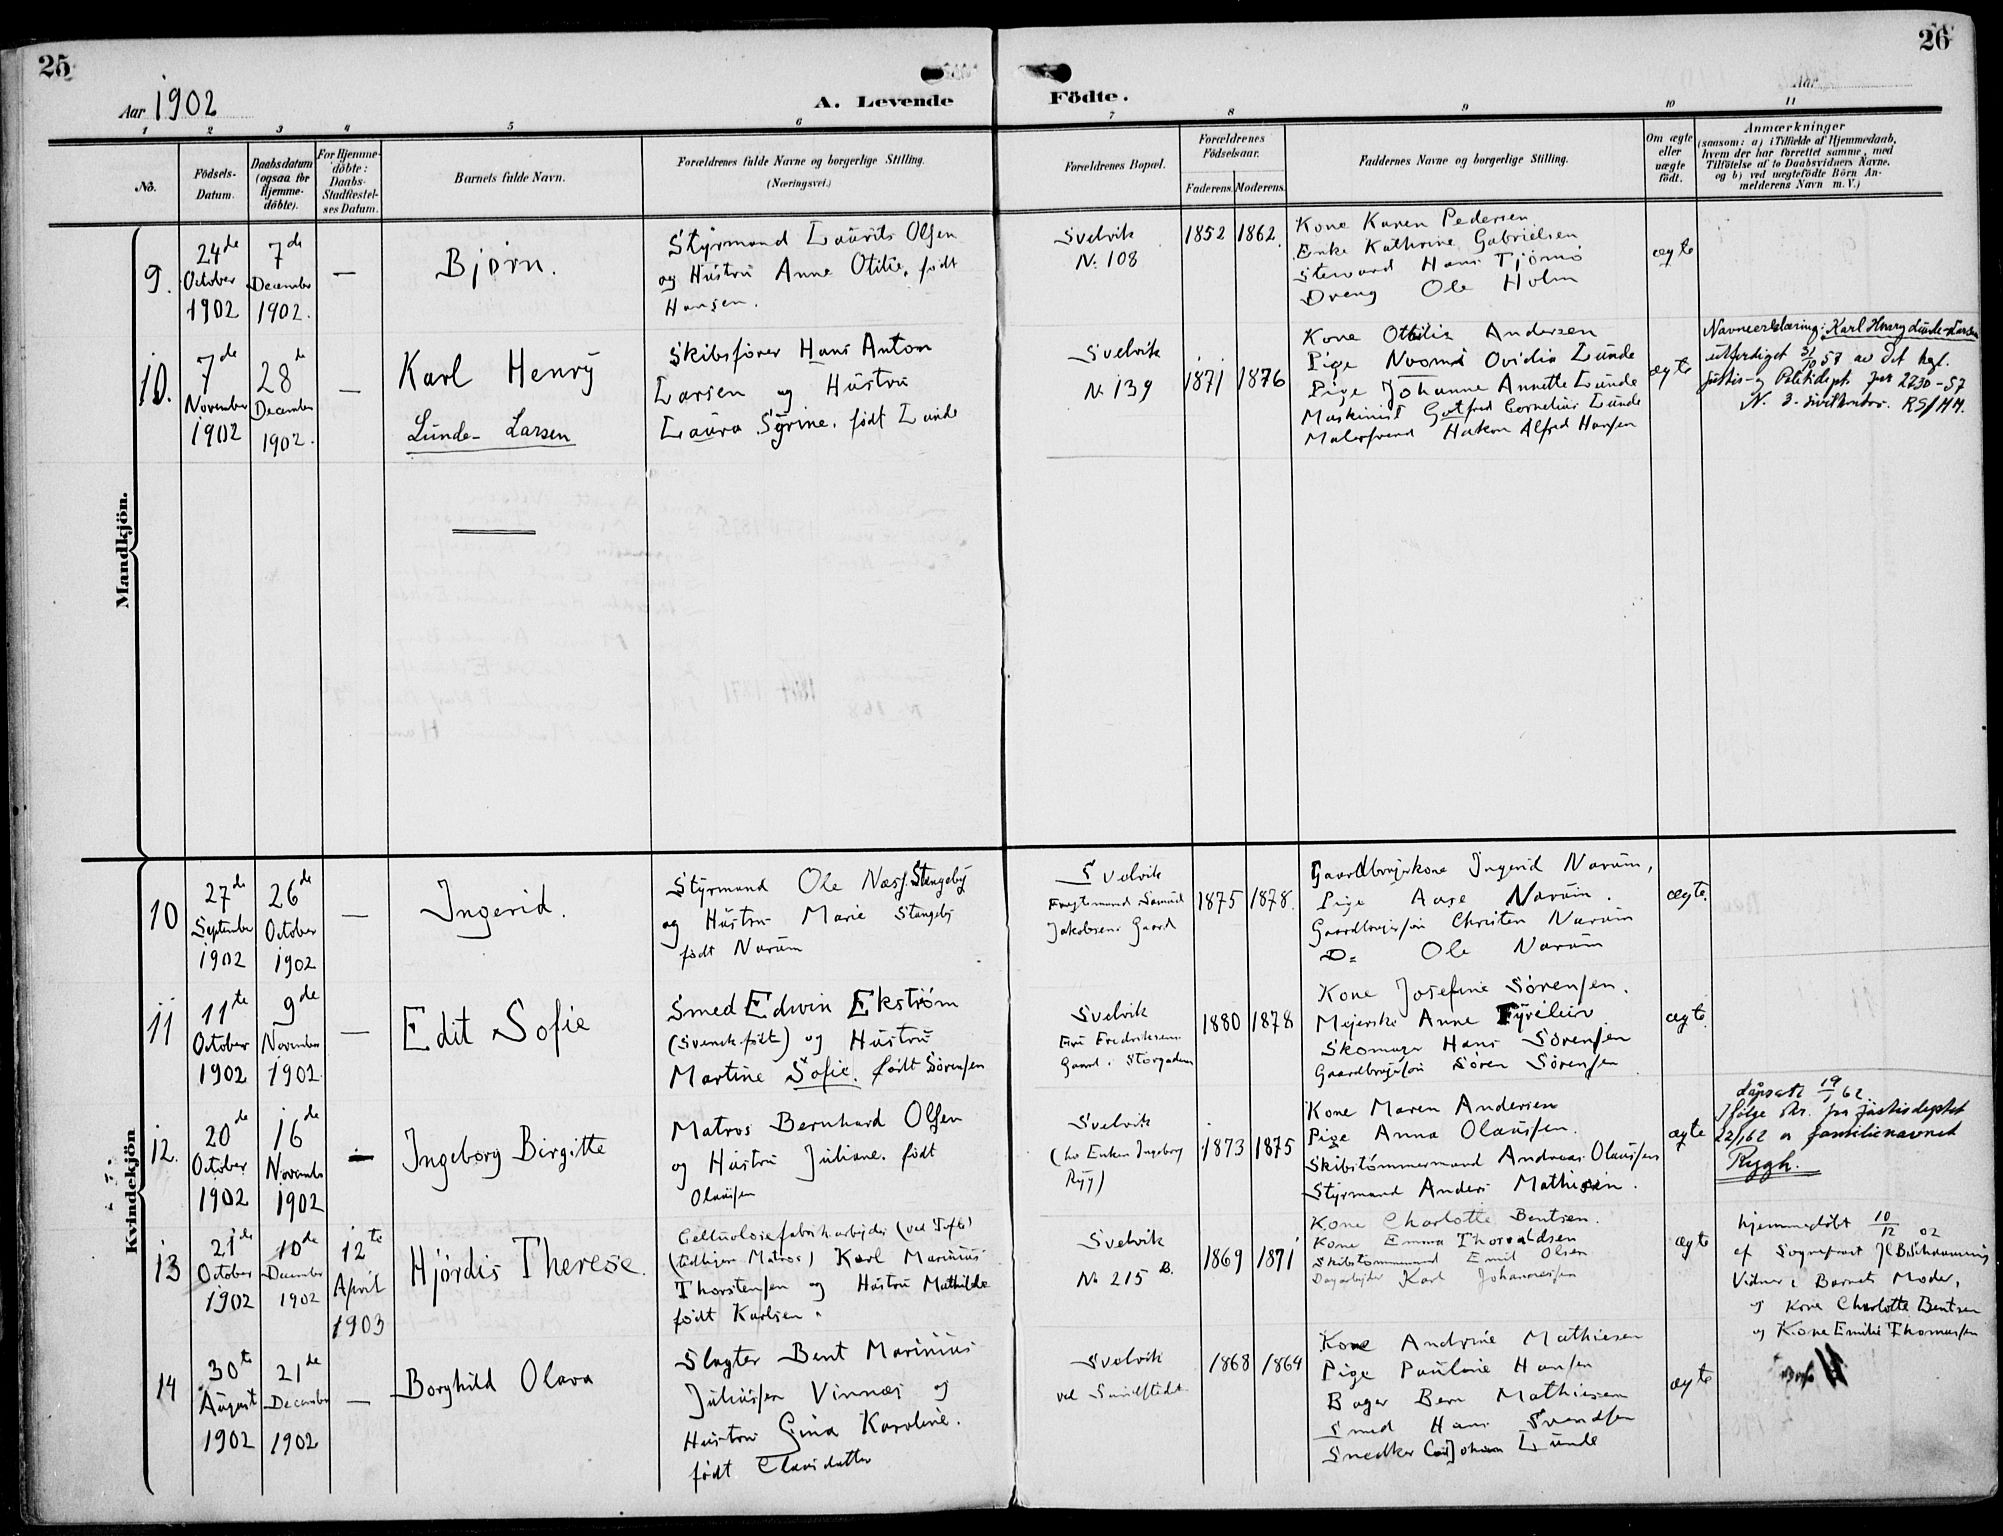 25
26
Aar 1902
A. Levende
Födte.
Aar
1
2
3
4
5
6
7
8
9
10
11
No.
Födsels-
Datum.
Daabsdatum
(ogsaa for
Hjemme-
döbte).
For Hjemme-
döbte:
Daabs-
Stadfæstel-
ses Datum.
Barnets fulde Navn.
Forældrenes fulde Navne og borgerlige Stilling.
(Næringsvei.)
Forældrenes Bopæl.
Forældrenes
Födselsaar.
Faderens.
Moderens.
Faddernes Navne og borgerlige Stilling.
Om ægte
eller
uægte
födt.
Anmærkninger
(saasom: a) i Tilfælde af Hjemmedaab,
hvem der har forrettet samme, med
Tilföielse af to Daabsvidners Navne.
og b) ved uægtefödte Börn An-
melderens Navn m. V.)
Mandkjön.
9.
24de
October
1902
7de
December
1902.
—
Bjørn.
Styrmand Laurits Olsen
og Hustru Anne Otilie, født
Hansen.
Svelvik
No 108
1852
1862.
Kone Karen Pedersen
Enke Kathrine Gabrielsen
Steward Hans Tjømø
Dreng Ole Holm
ægte
10.
7de
November
1902
28de
December
1902.
—
Karl Henry
Lunde-Larsen
Skibsfører Hans Anton
Larsen og Hustru
Laura Syrine, født Lunde
Svelvik
No 139
1871
1876
Kone Ottilia Andersen
Pige Noomi Ovidia Lunde
Pige Johanne Annette Lunde
Maskinist Gotfred Cornelius Lunde
Malersvend Hakon Alfred Hansen
ægte
Navneerklæring: Karl Henry Lunde-Larsen
utferdiget 31/10 57 av Det kgl.
Justis- og Politidept. jnr 2230-57
N. 3. sivilkontor. RS/MM.
Kvindekjön
10
27de
September
1902
26de
October
1902
—
Ingerid.
Styrmand Ole Næss Stangeby
og Hustru Marie Stangeby
født Narum
Svelvik
Fragtemand Samuel
Jakobsens Gaard
1875
1878.
Gaardbrugerkone Ingerid Narum,
Pige Aase Narum.
Gaardbruger Christen Narum
Do Ole Narum
ægte.
11
11te
October
1902
9de
November
1902
—
Edit Sofie
Smed Edwin Ekstrøm
(svenskfødt) og Hustru
Martine Sofie, født Sørensen
Svelvik
Fru Fredriksens
Gaard i Storgaden
1880
1878
Kone Josefine Sørensen.
Mejerske Anne
Skomager Hans Sørensen
Søren Sørensen
ægte.
12.
20de
October
1902
16de
November
1902
—
Ingeborg Birgitte
Matros Bernhard Olsen
og Hustru Juliane, født
Olaussen
Svelvik
(hos Enken Ingeborg
Ryg)
1873
1875
Kone Maren Andersen
Pige Anna Olaussen.
Skibstømmermand Andreas Olaussen
Styrmand Anders Mathisen.
ægte
Dåpsatt. 19/1 62.
Ifølge skr. fra justisdeptet
22/1 62 er familienavnet
Rygh.
13
21de
October
1902
10de
December
1902
12te
April
1903
Hjørdis Therese.
Cellulosefabrikarbejder (ved Tofte)
(tidligere Matros) Karl Marinius
Thorstensen og Hustru Mathilde
født Karlsen.
Svelvik
No 215 B.
1869
1871
Kone Charlotte Bentsen.
Kone Emma Thorvaldsen
Skibstømmermand Emil Olsen
Dagarbejder Karl Johannessen
ægte
hjemmedøbt 10/12 02
af Sogneprest
Vidner: Barnets Moder,
og Kone Charlotte Bentsen
og Kone Emilie Thomassen
14
30te
August
1902
21de
December
1902
—
Borghild Olava
Slagter Bent Marinius
Juliussen Vinnæs og
Hustru Gina Karoline.
født Clausdatter
Svelvik
ved
1868
1864
Kone Andrine Mathiesen
Pige Pauline Hansen
Bager Bern Mathiesen
Smed Hans Svendsen
Snedker Carl Johan Lunde
ægte